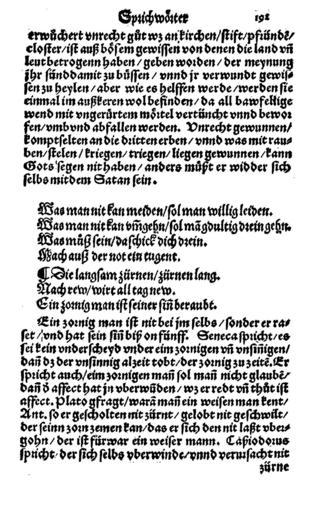 Sprichwörter 192
erwůchert vnrecht gůt wz an kirchen/stift/pfründē/
closter/ist auß bösem gewissen von denen die land vñ
leut betrogenn haben/geben worden/der meynung
jhr sünddamit zu büssen/vnnd jr verwundt gewis-
sen zu heylen/aber wie es helffen werde/werden sie
einmal im außkeren wol befinden/da all bawfellige
wend mit vngerürtem mörtel vertüncht vnnd bewor
fen/vmbvnd abfallen werden. Vnrecht gewunnen/
kompt selten an die dritten erben/vnnd was mit rau-
ben/stelen/kriegen/triegen/liegen gewunnen/kann
Gots segen nit haben/anders müßt er widder sich
selbs mit dem Satan sein.
Was man nit kan meiden/sol man willig leiden.
Was man nit kan vm̄gehn/sol mā gdultig drein gehn.
Was můß sein/da schick dich drein.
Mach auß der not ein tugent.
¶ Die langsam zürnen/zürnen lang.
Nach rew/wirt all tag new.
Ein zornig man ist seiner siñ beraubt.
Ein zornig man ist nit bei jm selbs/sonder er ra-
set/vnd hat sein siñ biß on fünff. Seneca spricht/es
sei kein vnderscheyd vnder eim zornigen vñ vnsiñigen/
dañ dz der vnsinnig alzeit tobt/der zornig zu zeitē. Er
spricht auch/eim zornigen mañ sol mañ nicht glaubē/
dañ ď affect hat jn vberwůdē/wz er redt vñ thůt ist
affect. Plato gfragt/warā mañ ein weisen man kent/
Ant. so er gescholten nit zürnt/gelobt nit geschwilt/
der seinn zorn zemen kan/das er sich den nit laßt vber-
gohn/der ist fürwar ein weiser mann. Caßiodorus
spricht/der sich selbs vberwinde/vnnd verursacht nit
zürne